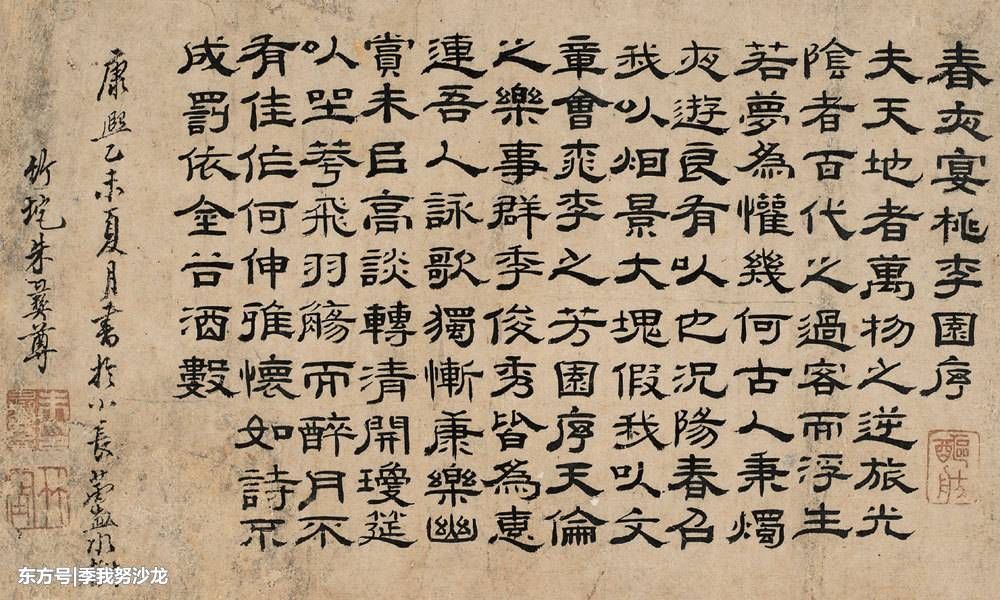 春夜宴桃李園序
夫天地者萬物之逆旅光
陰者百代之過客而浮生
若夢為懽幾何古人秉燭
夜遊良有以也況陽春召
我以烟景大塊假我以文
章會桃李之芳園序天倫
之樂事群季俊秀皆為惠
連吾人詠歌獨慚康樂幽
賞未已高談轉清開瓊筵
以坐花飛羽觴而醉月不
有佳作何伸雅懷如詩不
成罰依金谷酒數
康熙乙未夏月書於小長蘆
竹垞朱彝尊
醧舫
东方号|季我努沙龙